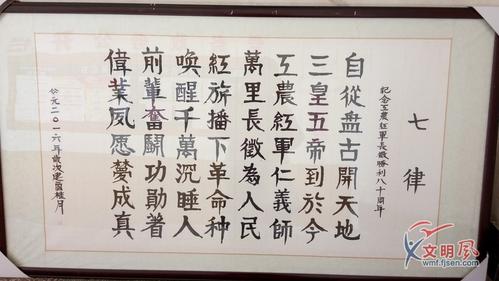 七律
記念工農紅軍長徵勝利八十周年
自從盘古開天地
三皇五帝到於今
工農紅軍仁義師
萬里長徵為人民
紅旗播下革命种
喚醒千萬沉睡人
前輩奮鬭功勛著
偉業夙愿夢成真
公元二〇一六年歲次建國桂月
文明風
wmf.fjsen.com